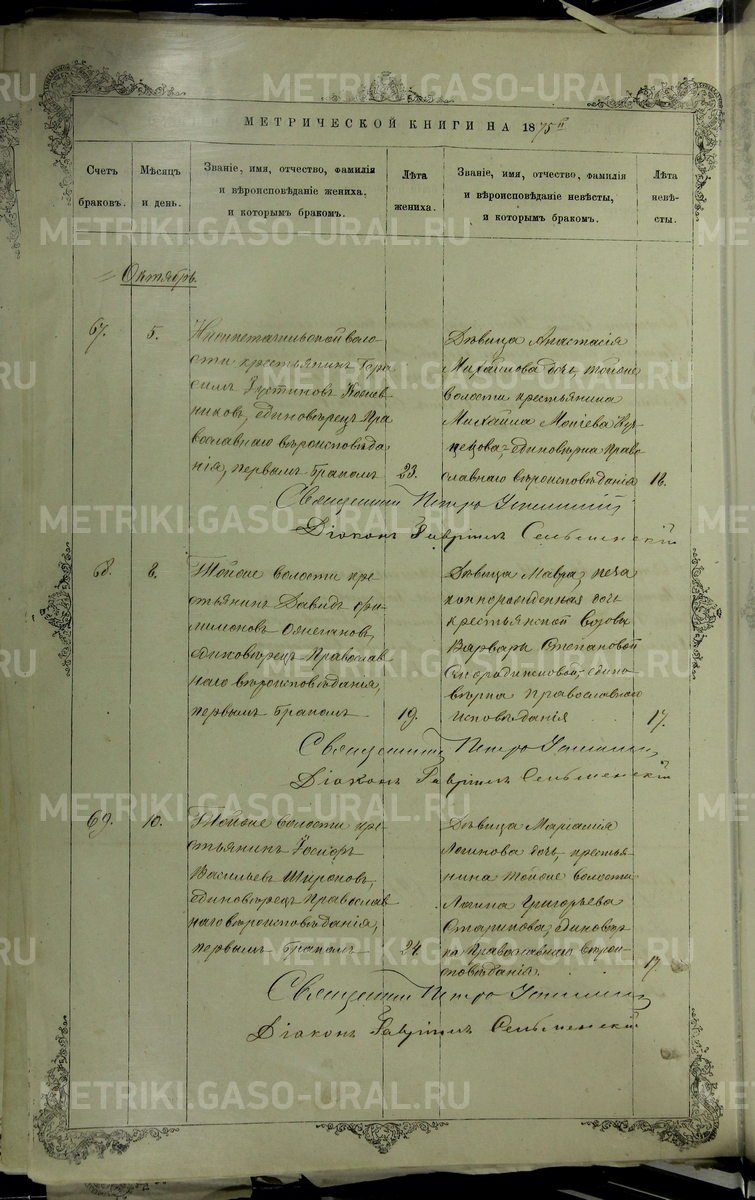 МЕТРИЧЕСКОЙ КНИГИ НА 1875
Счетъ браковъ.
Мѣсяцъ и день.
Званіе, имя, отчество, фамилія
и вѣроисповѣданіе жениха,
и которымъ бракомъ.
Лѣта жениха.
Званіе, имя, отчество, фамилія
и вѣроисповѣданіе невѣсты,
и которымъ бракомъ.
Лѣта невѣ-
сты.
Октябрь.
67.
5.
воло-
сти крестьянинъ Гера
симъ Іустиновъ
никовъ, единовѣрецъ Пра
вославнаго вѣроисповѣда
нія, первымъ бракомъ
23.
Дѣвица Анастасія
Михайлова дочь, тойже
волости крестьянина
Михаила Моѵсіева Куз
нецова, единовѣрка Право
славнаго вѣроисповѣданія
Священникъ Петръ
Діаконъ Гавріилъ Сельменскій
68.
8.
Тойже волости кре
стьянинъ Давидъ Фи
лимоновъ
единовѣрецъ Православ
наго вѣроисповѣданія,
первымъ бракомъ
19.
Дѣвица Мавра, неза
коннорожденная дочь
крестьянской вдовы
Варвары Степановой
едино
вѣрка православнаго
исповѣданія
17.
Священникъ Петръ
Діаконъ Гавріилъ Сельменскій
69.
10.
Тойже волости кре
стьянинъ Іосифъ
Васильевъ Широковъ,
единовѣрецъ Православ
наго вѣроисповѣданія,
первымъ бракомъ
24.
Дѣвица Маріамія
Логинова дочь, крестья
нина тойже волости
Логина Григорьева
Старикова, единовѣр
ка Православнаго вѣрои
сповѣданія.
17.
Священникъ Петръ
Діаконъ Гавріилъ Сельменскій
METRIKI.GASO-URAL.RU